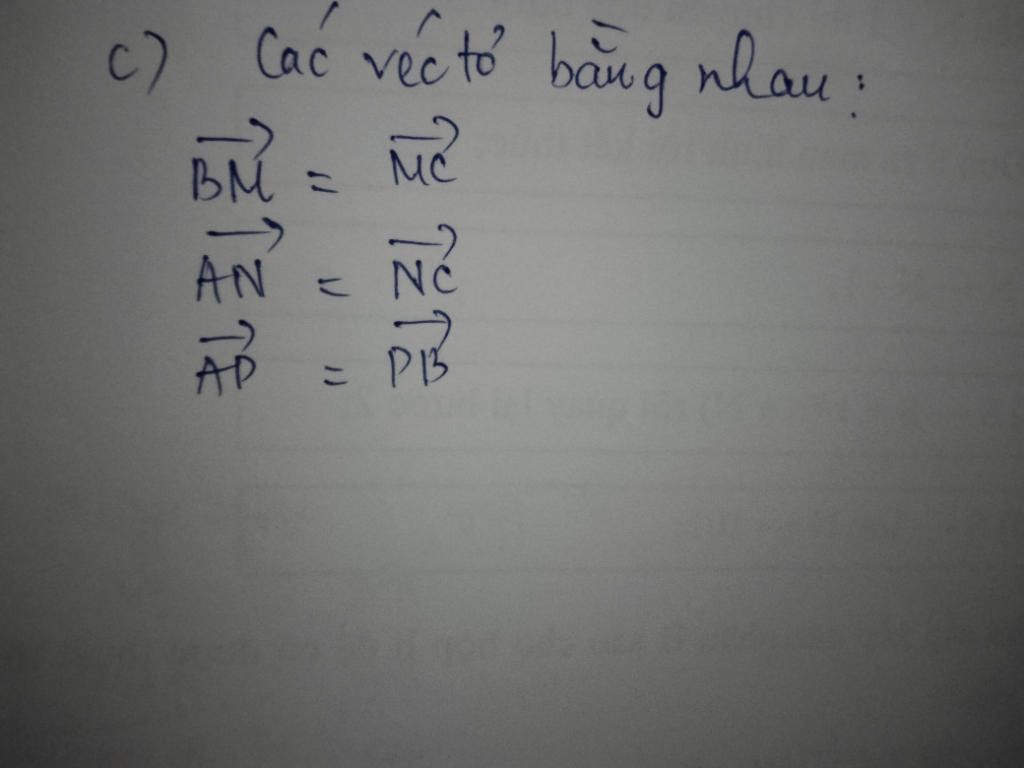 c) Các véctơ bằng nhau:
BM→ = MC→
AN→ = NC→
AP→ = PB→